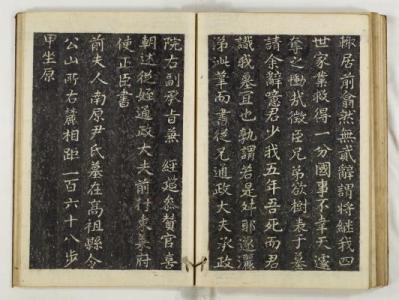 居前翕然無貳辭謂將繼我四
世家業設得一分國事不幸天遽
奪之慟哉徵臣兄弟欲樹表于墓
請余辭噫君少我五年吾死而君
識我墓宜也孰謂若是舛耶遂灑
涕泚筆而書從兄通政大夫承政
院右副承旨兼 經筵叅贊官喜
朝述從姪通政大夫前行東萊府
使正臣書
前夫人南原尹氏墓在高祖縣令
公山所右麓相距一百六十八步
甲坐原